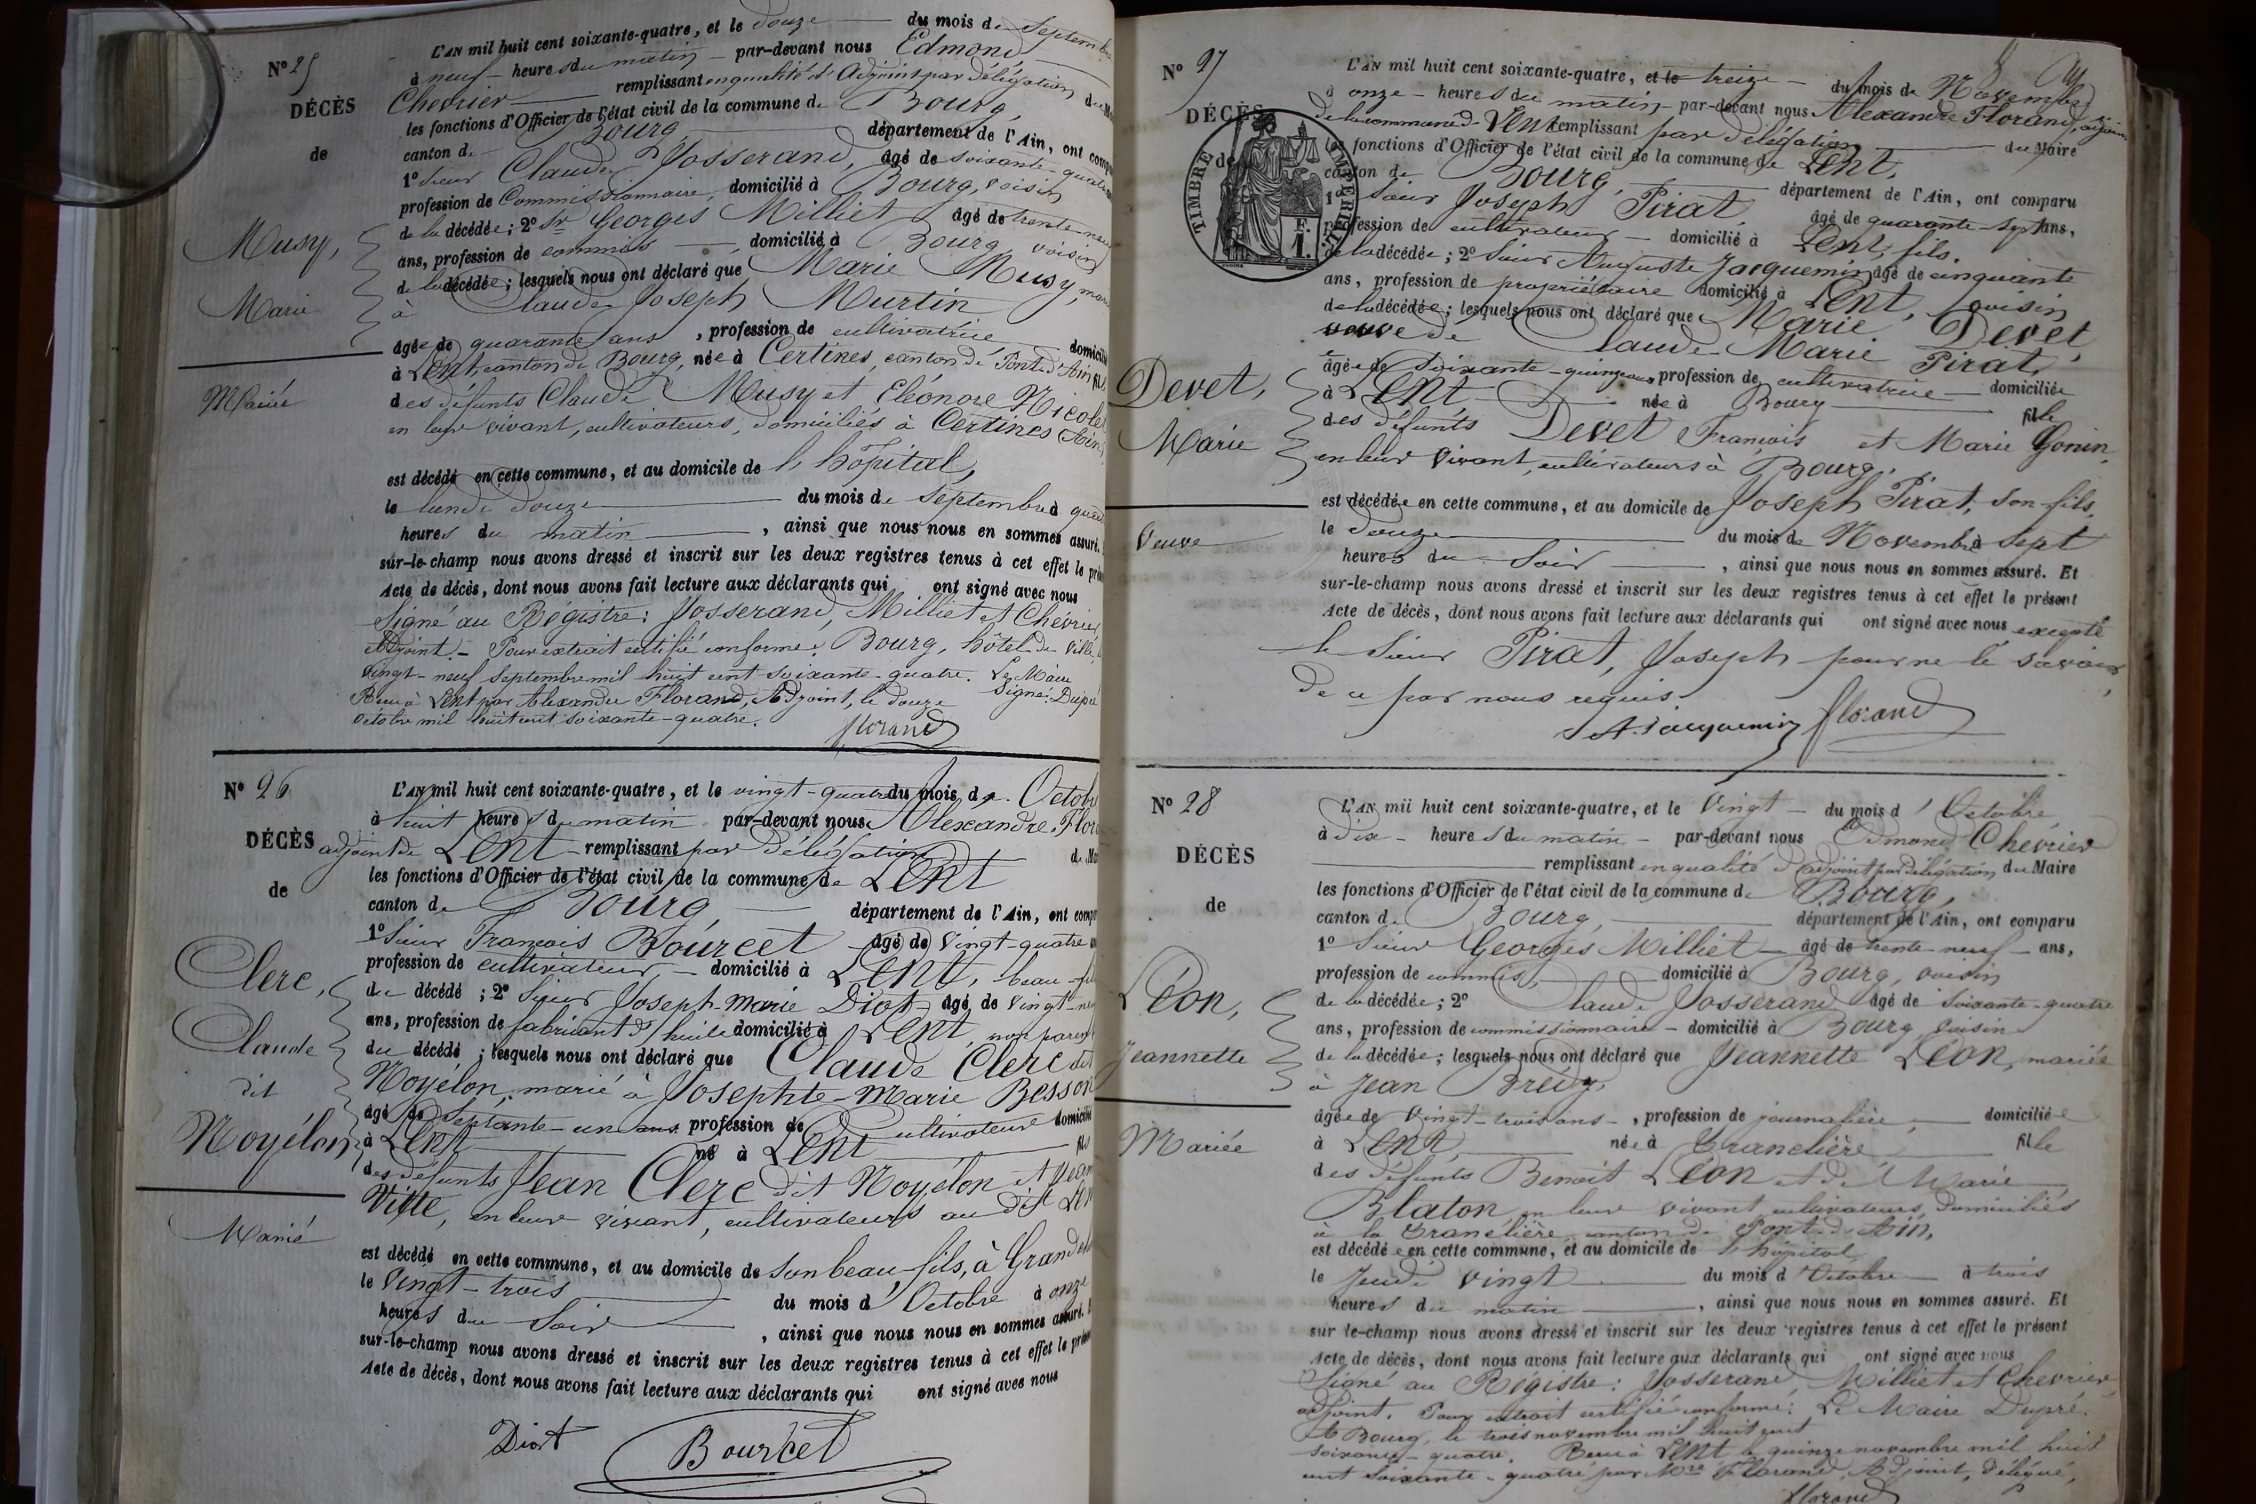 N° 25
DÉCÈS
de
Musy,
Marie
Mariée
L'AN mil huit cent soixante-quatre, et le douze du mois de Septembre
à neuf heures du matin par-devant nous Edmond
Chevrier remplissant en qualité d'Adjoint par délégation du
les fonctions d'Officier de l'état civil de la commune de Bourg,
canton de Bourg département de l'Ain, ont comp
1° Sieur Claude Josserand, âgé de soixante-quatre
profession de Commissionnaire, domicilié à Bourg, voisin
de la décédée; 2° Sr Georges Milliet âgé de trente-neuf
ans, profession de commis domicilié à Bourg voisin
de la décédée; lesquels nous ont déclaré que Marie Musy,
à Claude Joseph Murtin
âgée de quarante ans, profession de cultivatrice domicili
à Lent, canton de Bourg, née à Certines, canton de Pont-d'Ain fil
des défunts Claude Musy et Eléonore Nicole
en leur vivant, cultivateurs, domiciliés à Certines Ain,
est décédé en cette commune, et au domicile de l'hôpital,
le lundi douze du mois de Septembre à
heures du matin, ainsi que nous nous en sommes assuré.
sur-le-champ nous avons dressé et inscrit sur les deux registres tenus à cet effet le pré
Acte de décès, dont nous avons fait lecture aux déclarants qui ont signé avec nous
Signé au Régistre: Josserand, Milliet et Chevrier
Adjoint. – Pour extrait certifié conforme, Bourg, hôtel de Ville,
Vingt-neuf Septembre mil huit cent soixante-quatre. Le Maire
Signé: Dupré
Reçu à Lent par Alexandre Florand, Adjoint, le douze
Octobre mil huit cent soixante-quatre.
Florand
N° 26
DÉCÈS
de
Clerc,
Claude
dit
Noyélon
Marié
L'AN mil huit cent soixante-quatre, et le vingt-quatre du mois d'Octob
à huit heures du matin par-devant nous Alexandre Flor
adjoint de Lent remplissant par délégation du Ma
les fonctions d'Officier de l'état civil de la commune de Lent
canton de Bourg, département de l'Ain, ont comp
1° Sieur François Bourcet âgé de vingt-quatre
profession de cultivateur domicilié à Lent, beau-fil
du décédé; 2° Sieur Joseph-Marie Diot âgé de vingt-
ans, profession de fabricant d'huile domicilié à Lent, non parent
du décédé; lesquels nous ont déclaré que Claude Clerc dit
Noyélon, marié à Josephte-Marie Besson
âgé de Septante-un ans profession de cultivateur domicilié
à Lent né à Lent fils
des défunts Jean Clerc dit Noyélon et
Vitte, en leur vivant, cultivateurs au dit Len
est décédé en cette commune, et au domicile de son beau-fils, à Grand
le Vingt-trois du mois d'Octobre à onze
heures du Soir, ainsi que nous nous en sommes assuré.
sur-le-champ nous avons dressé et inscrit sur les deux registres tenus à cet effet le prés
Acte de décès, dont nous avons fait lecture aux déclarants qui ont signé avec nous
Diot Bourcet
N° 27
DÉCÈS
de
TIMBRE IMPÉRIAL
Devet,
Marie
Veuve
L'AN mil huit cent soixante-quatre, et le treize du mois de Novembre
à onze heures du matin par-devant nous Alexandre Florand, adjoint
de la commune de Lent remplissant par délégation du Maire
les fonctions d'Officier de l'état civil de la commune de Lent,
canton de Bourg, département de l'Ain, ont comparu
1° Sieur Joseph Pirat âgé de quarante-sept ans,
profession de cultivateur domicilié à Lent, fils.
de la décédée; 2° Sieur Auguste Jacquemin âgé de cinquante
ans, profession de propriétaire domicilié à Lent, voisin
de la décédée; lesquels nous ont déclaré que Marie Devet,
veuve de Claude Marie Pirat,
âgée de Soixante-quinze ans, profession de cultivatrice domiciliée
à Lent née à Bourg fille
des défunts Devet François et Marie Gonin,
en leur vivant, cultivateurs à Bourg.
est décédée en cette commune, et au domicile de Joseph Pirat, son fils,
le Douze du mois de Novembre à sept
heures du Soir, ainsi que nous nous en sommes assuré. Et
sur-le-champ nous avons dressé et inscrit sur les deux registres tenus à cet effet le présent
Acte de décès, dont nous avons fait lecture aux déclarants qui ont signé avec nous excepté
le Sieur Pirat, Joseph pour ne le savoir
de ce par nous requis.
A. Jacquemin Florand
N° 28
DÉCÈS
de
Léon,
Jeannette
Mariée
L'AN mil huit cent soixante-quatre, et le Vingt du mois d'Octobre
à dix heures du matin par-devant nous Edmond Chevrier
remplissant en qualité d'adjoint par délégation du Maire
les fonctions d'Officier de l'état civil de la commune de Bourg,
canton de Bourg, département de l'Ain, ont comparu
1° Sieur Georges Milliet âgé de trente-neuf ans,
profession de commis, domicilié à Bourg, voisin
de la décédée; 2° Claude Josserand âgé de soixante-quatre
ans, profession de commissionnaire domicilié à Bourg, voisin
de la décédée; lesquels nous ont déclaré que Jeannette Léon, mariée
à Jean Brevy,
âgée de Vingt-trois ans, profession de journalière, domiciliée
à Lent, née à Tranclière, fille
des défunts Benoit Léon et de Marie
Blaton, en leur vivant cultivateurs, domiciliés
à la Tranclière, canton de Pont-d'Ain,
est décédée en cette commune, et au domicile de l'hôpital
le Jeudi vingt du mois d'Octobre à trois
heures du matin, ainsi que nous nous en sommes assuré. Et
sur le-champ nous avons dressé et inscrit sur les deux registres tenus à cet effet le présent
Acte de décès, dont nous avons fait lecture aux déclarants qui ont signé avec nous
Signé au Régistre: Josserand, Milliet et Chevrier,
adjoint. Pour extrait certifié conforme: Le Maire Dupré.
A Bourg, le trois novembre mil huit cent
soixante-quatre. Reçu à Lent le quinze novembre mil huit
cent soixante-quatre par Mre Florand, Adjoint, délégué,
Florand